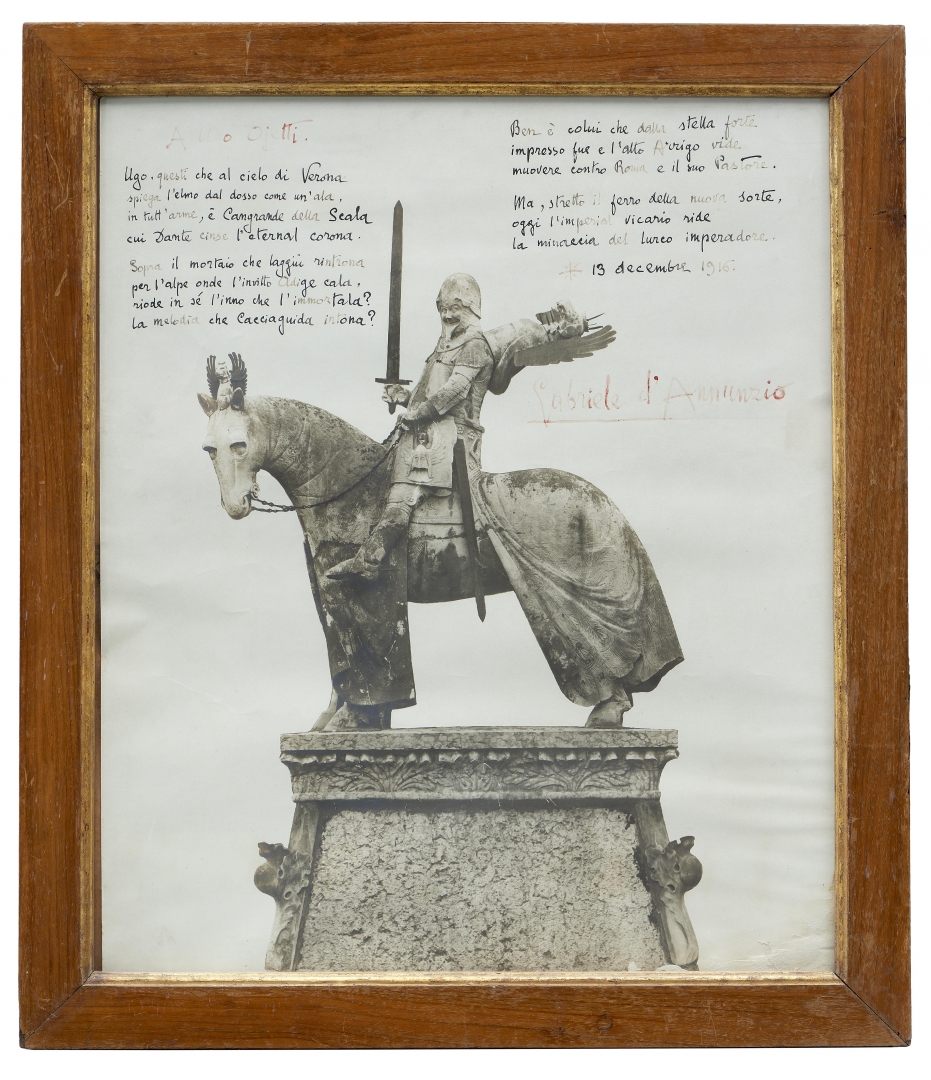 A Ugo Ojetti.
Ugo, questi che al cielo di Verona
spiega l'elmo dal dosso come un'ala,
in tutt'arme, è Cangrande della Scala
cui Dante cinse l'eternal corona.
Sopra il mortaio che laggiù rintrona
per l'alpe onde l'invitto Adige cala,
riode in sé l'inno che l'immortala?
la melodia che Cacciaguida intona?
Ben è colui che dalla stella forte
impresso fue e l'alto Arrigo vide
muovere contro Roma e il suo Pastore.
Ma, stretto il ferro della nuova sorte,
oggi l'imperial vicario ride
la minaccia del lurco imperadore.
13 decembre 1916.
Gabriele d'Annunzio